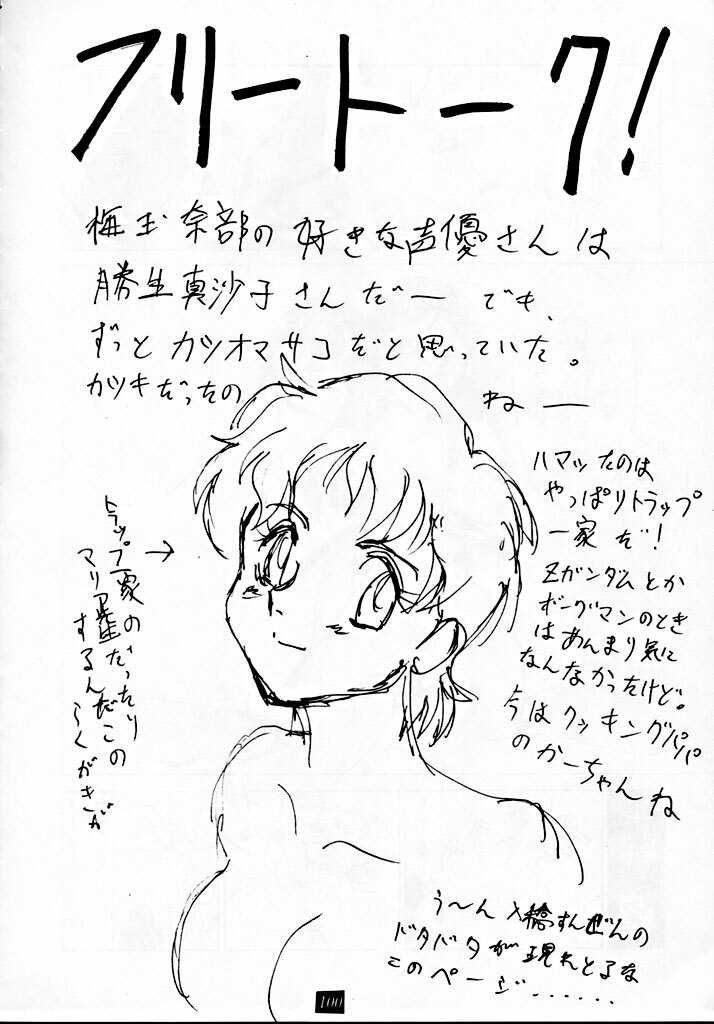 フリートーク!
梅玉奈部の好きな声優さんは
勝生真沙子さんだー でも、
ずっとカツオマサコだと思っていた。
カツキだったの
ねー
ハマッたのは
やっぱりトラップ
一家だ!
Zガンダムとか
ボーグマンのとき
はあんまり気に
なんなかったけど。
今はクッキングパパ
のかーちゃんね
→
トラップ一家の
マリア先生だったり
するんだこの
らくがきが
う〜ん 〆橋すんぜんの
ドタバタが現れとるな
このページ‥‥‥
100